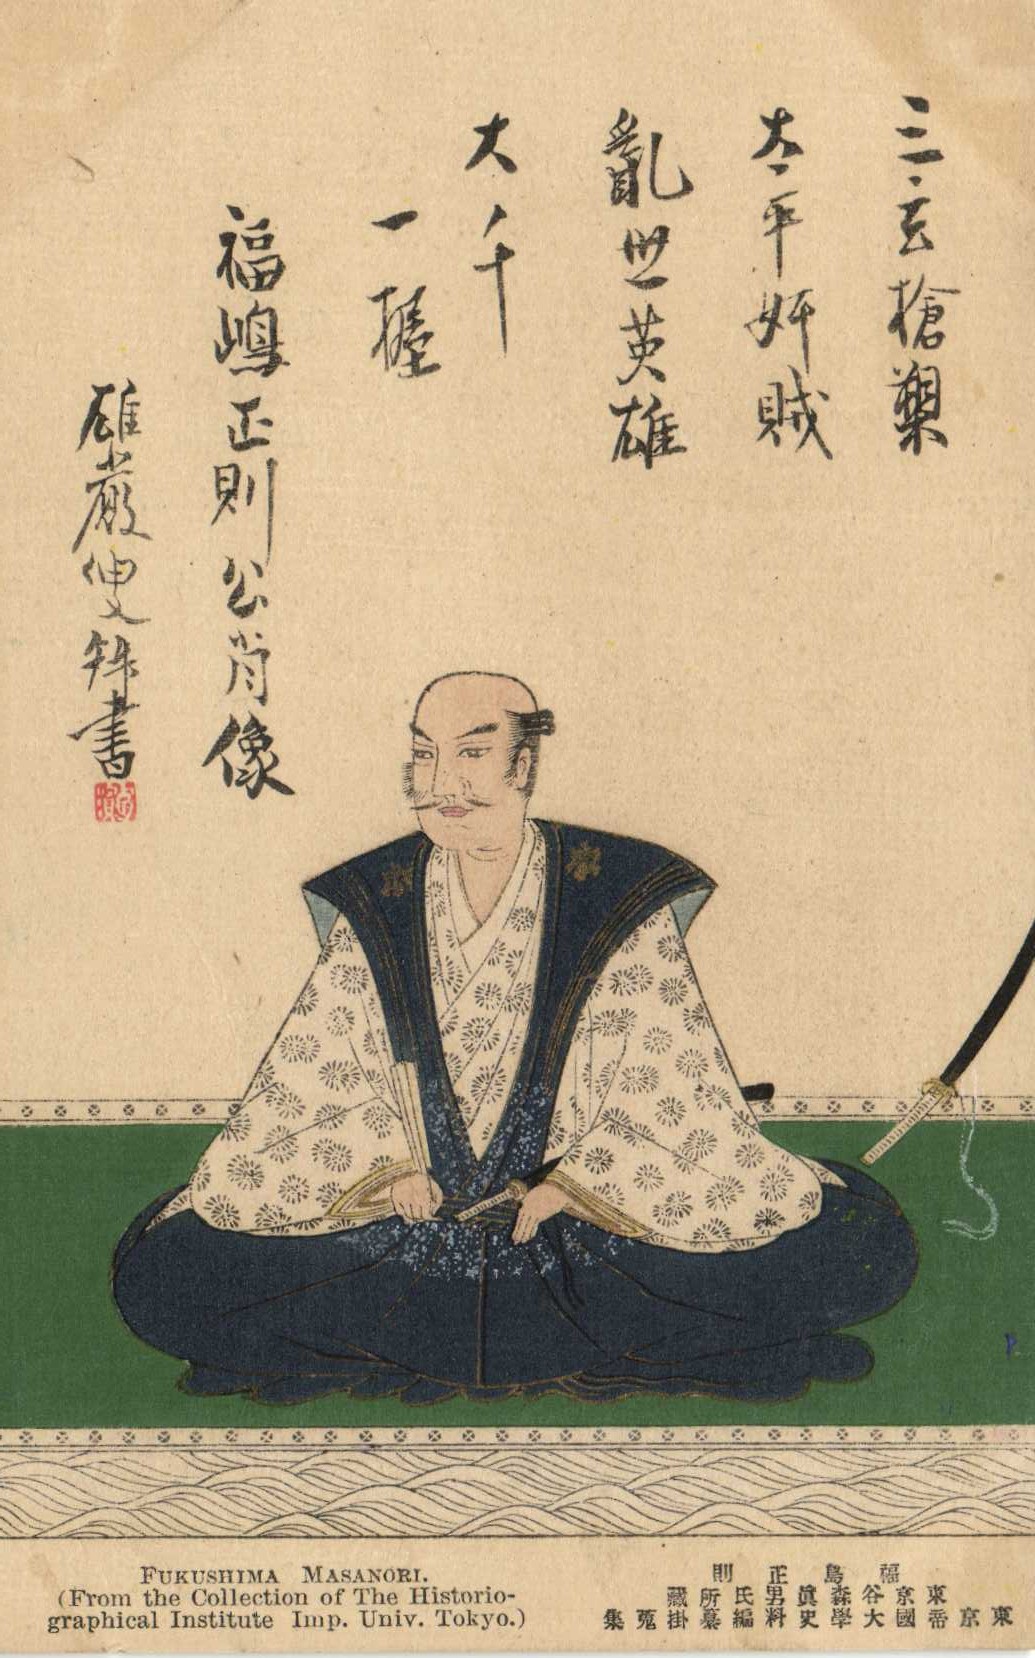 三玄槍槊
太平奸賊
亂世英雄
大千
一握
福嶋正則公肖像
雄巖叟
書
FUKUSHIMA MASANORI.
(From the Collection of The Historio-
graphical Institute Imp. Univ. Tokyo.)
福島正則
東京谷森眞男氏所藏
東京帝國大學史料編纂掛蒐集